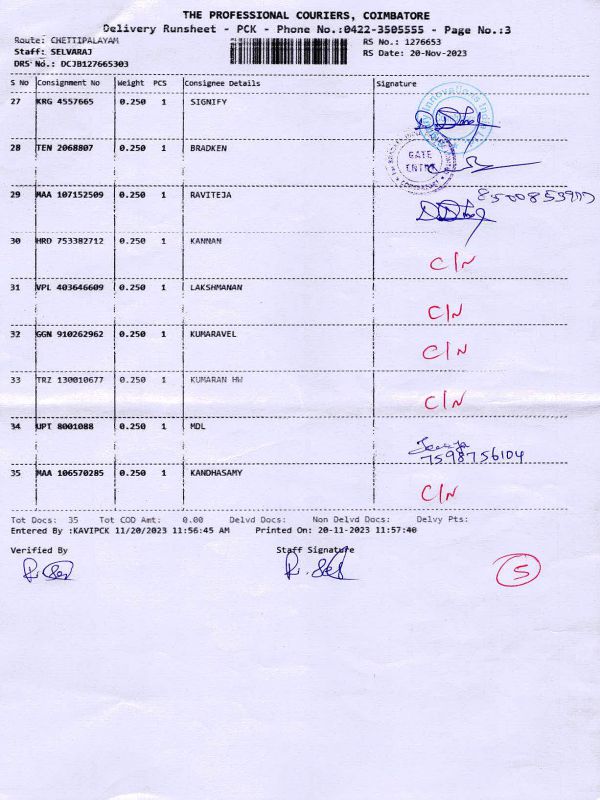 THE PROFESSIONAL COURIERS, COIMBATORE
Delivery Runsheet - PCK - Phone No.:0422-3505555 - Page No.:3
Route: CHETTIPALAYAM RS No.: 1276653
Staff: SELVARAJ RS Date: 20-Nov-2023
DRS No.: DCJB127665303
S No Consignment No Weight PCS Consignee Details Signature
27 KRG 4557665 0.250 1 SIGNIFY
28 TEN 2068807 0.250 1 BRADKEN
GATE
ENTRY
29 MAA 107152509 0.250 1 RAVITEJA
30 HRD 753382712 0.250 1 KANNAN C/N
31 VPL 403646609 0.250 1 LAKSHMANAN C/N
32 GGN 910262962 0.250 1 KUMARAVEL C/N
33 TRZ 130010677 0.250 1 KUMARAN HW C/N
34 UPT 8001088 0.250 1 MDL
7598756104
35 MAA 106570285 0.250 1 KANDHASAMY C/N
Tot Docs: 35 Tot COD Amt: 0.00 Delvd Docs: Non Delvd Docs: Delvy Pts:
Entered By :KAVIPCK 11/20/2023 11:56:45 AM Printed On: 20-11-2023 11:57:40
Verified By Staff Signature
5